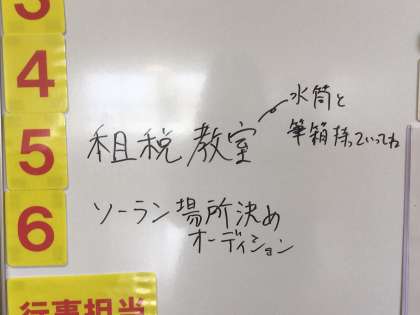 3
4
5
租税教室
水筒と
筆箱持っていってね
6
ソーラン場所決め
オーディション
行事担当